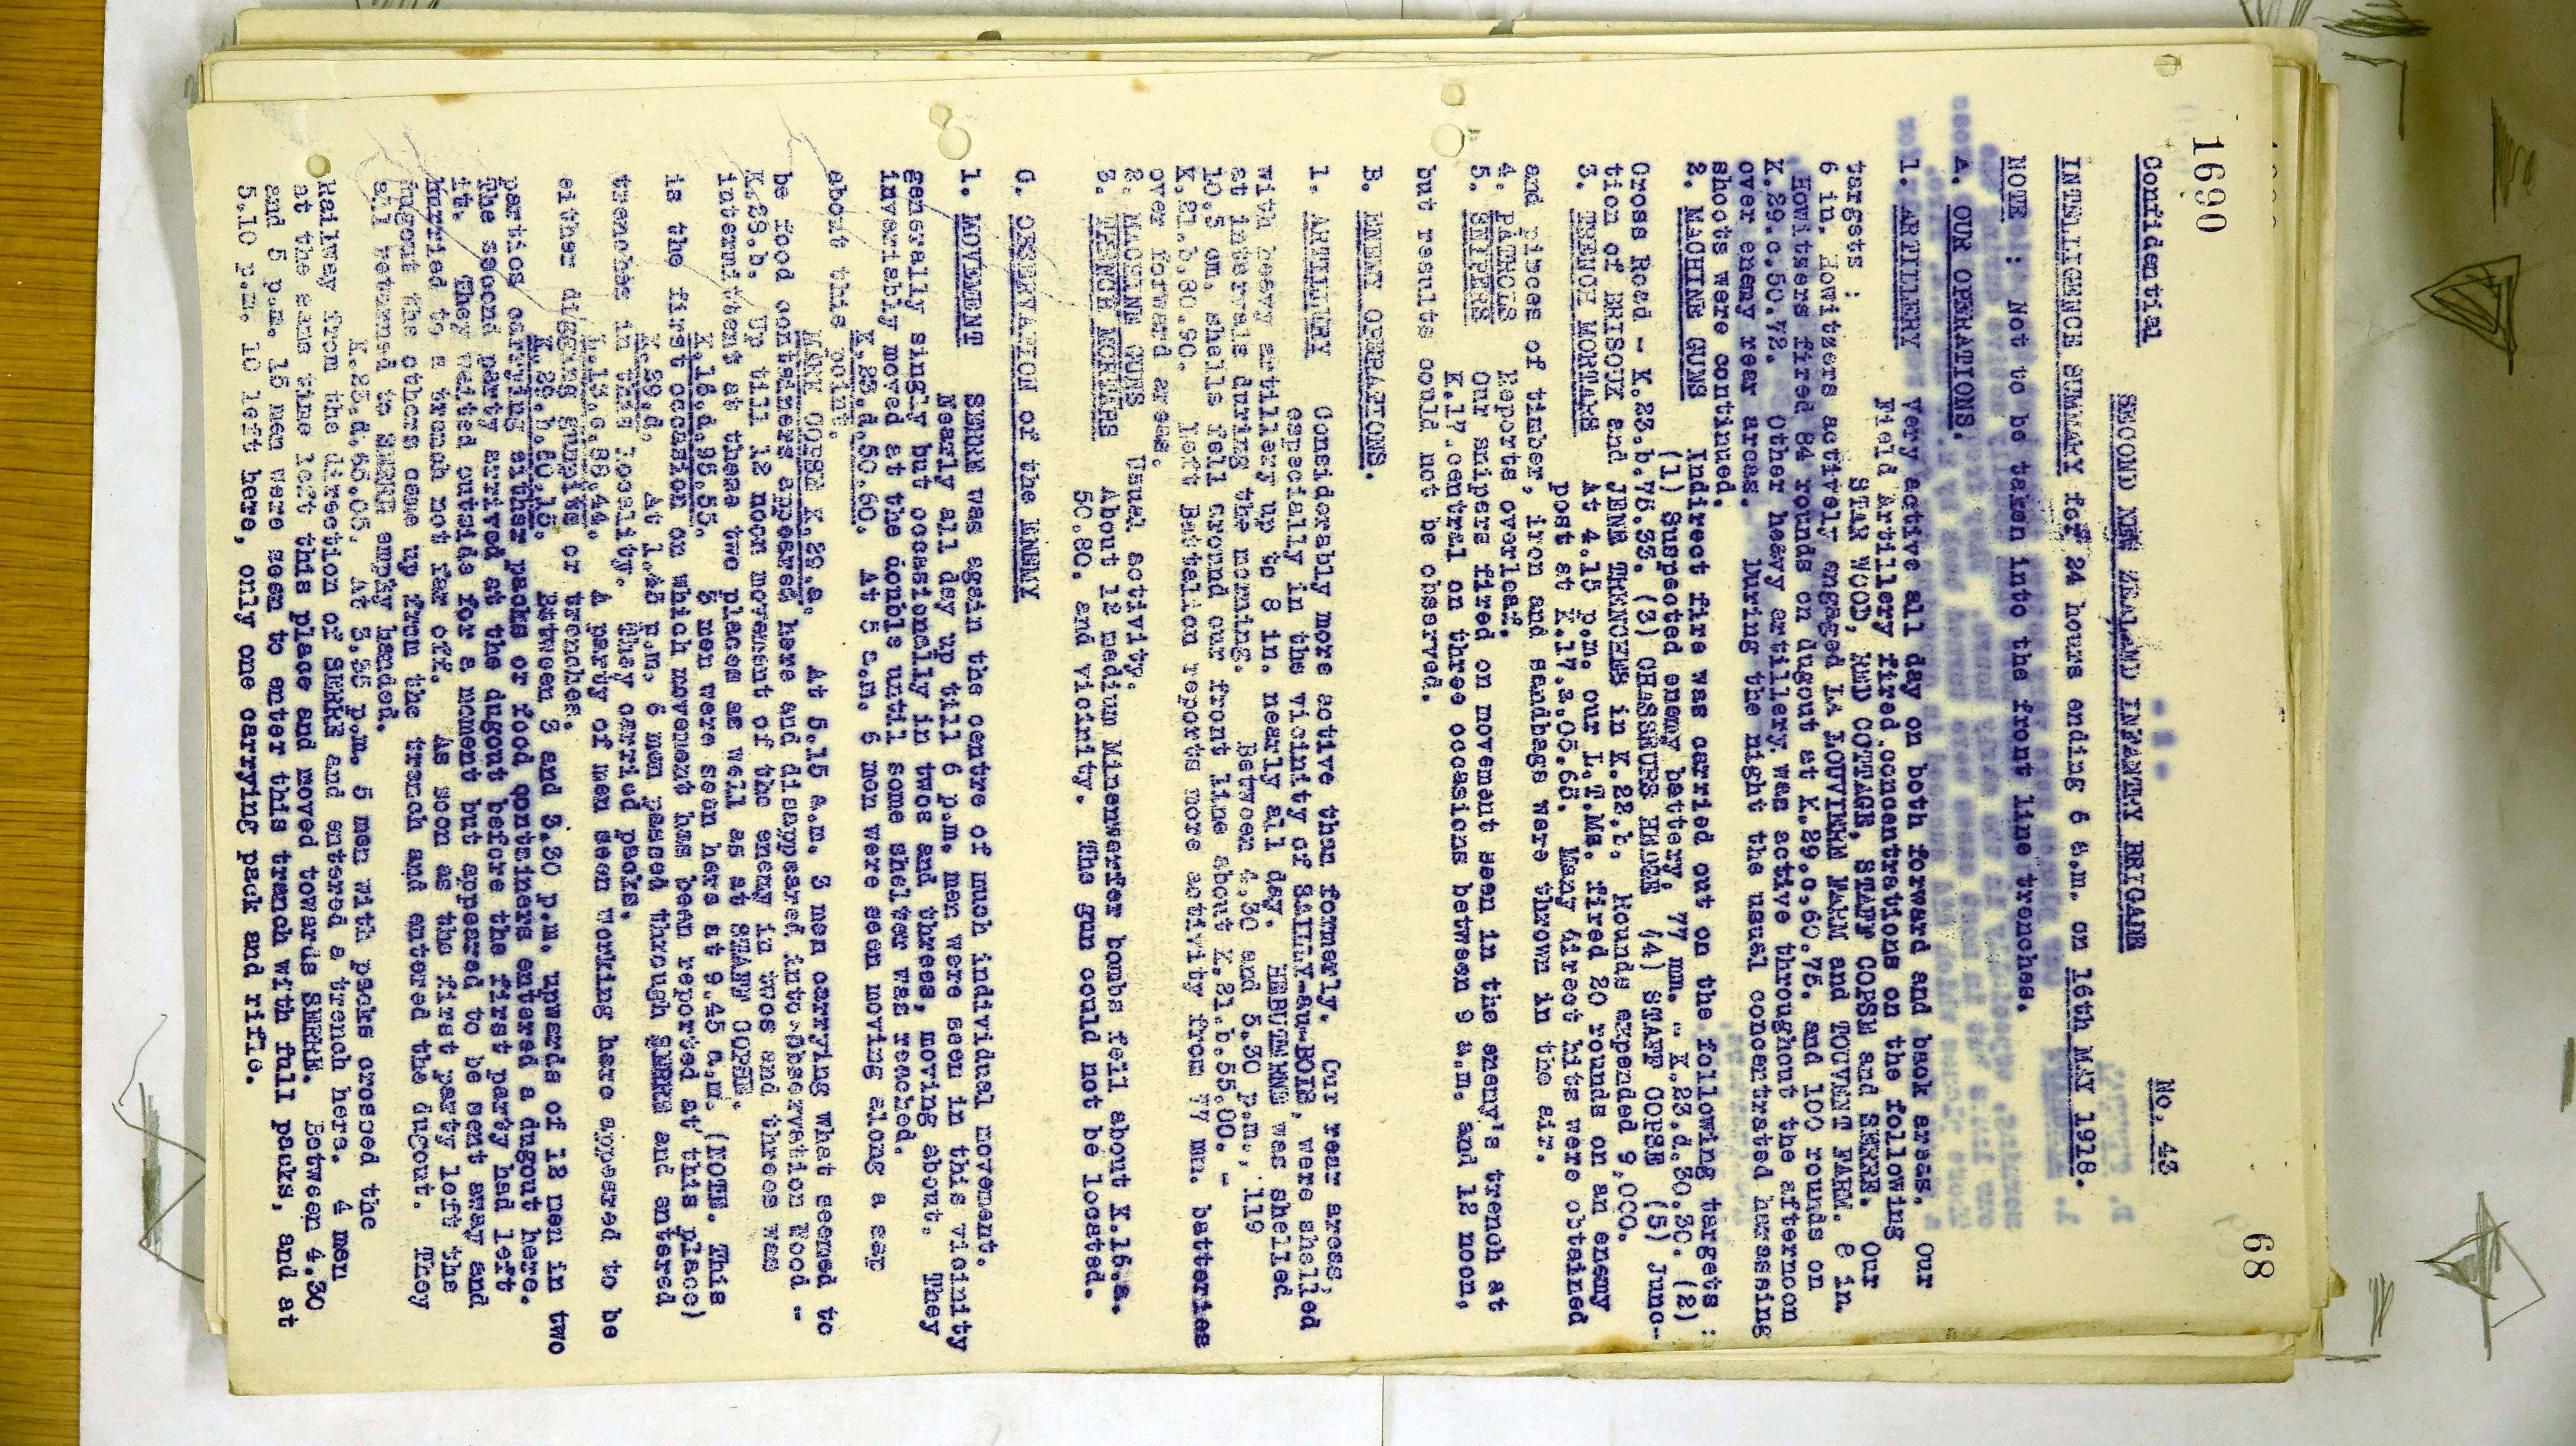 1690
68
Confidential
No. 43
SECOND NEW ZEALAND INFANTRY BRIGADE
INTELLIGENCE SUMMARY for 24 hours ending 6 a.m. on 16th MAY 1918.
NOTE : Not to be taken into the front line trenches.
A. OUR OPERATIONS.
1. ARTILLERY Very active all day on both forward and back areas. Our
Field Artillery fired concentrations on the following
targets : STAR WOOD, RED COTTAGE, STAFF COPSE and SERRE. Our
6 in. Howitzers actively engaged LA LOUVIERE FARM and TOUVENT FARM. 8 in.
Howitzers fired 84 rounds on dugout at K.29.c.60.75. and 100 rounds on
K.29.c.50.72. Other heavy artillery was active throughout the afternoon
over enemy rear areas. During the night the usual concentrated harassing
shoots were continued.
2. MACHINE GUNS Indirect fire was carried out on the following targets :
(1) Suspected enemy battery, 77 mm. - K.23.d.30.30. (2)
Cross Road - K.23.b.75.33. (3) CHASSEURS HEDGE (4) STAFF COPSE (5) Junc-
tion of BRISOUX and JENA TRENCHES in K.22.b. Rounds expended 9,000.
3. TRENCH MORTARS At 4.15 p.m. our L.T.Ms. fired 20 rounds on an enemy
post at K.17.a.05.65. Many direct hits were obtained
and pieces of timber, iron and sandbags were thrown in the air.
4. PATROLS Reports overleaf.
5. SNIPERS Our snipers fired on movement seen in the enemy's trench at
K.17.central on three occasions between 9 a.m. and 12 noon,
but results could not be observed.
B. ENEMY OPERATIONS.
1. ARTILLERY Considerably more active than formerly. Our rear areas,
especially in the vicinity of SAILLY-au-BOIS, were shelled
with heavy artillery up to 8 in. nearly all day. HEBUTERNE was shelled
at intervals during the morning. Between 4.30 and 5.30 p.m., 119
10.5 cm. shells fell around our front line about K.21.b.55.00. -
K.21.b.80.90. Left Battalion reports more activity from 77 mm. batteries
over forward areas.
2. MACHINE GUNS Usual activity.
3. TRENCH MORTARS About 12 medium Minenwerfer bombs fell about K.16.a.
50.80. and vicinity. The gun could not be located.
C. OBSERVATION of the ENEMY
1. MOVEMENT SERRE was again the centre of much individual movement.
Nearly all day up till 6 p.m. men were seen in this vicinity
generally singly but occasionally in twos and threes, moving about. They
invariably moved at the double until some shelter was reached.
K.23.d.50.60. At 5 a.m. 6 men were seen moving along a sap
about this point.
MARK COPSE K.29.a. At 5.15 a.m. 3 men carrying what seemed to
be food containers appeared here and disappeared into Observation Wood -
K.23.b. Up till 12 noon movement of the enemy in twos and threes was
intermittent at these two places as well as at STAFF COPSE.
K.16.d.95.55. 5 men were seen here at 9.45 a.m. (NOTE. This
is the first occasion on which movement has been reported at this place)
K.29.d. At 1.45 p.m. 6 men passed through SERRE and entered
trenches in this locality. They carried packs.
A party of men seen working here appeared to be
either digging gunpits or trenches.
K.29.b.20.15. Between 3 and 3.30 p.m. upwards of 12 men in two
parties carrying either packs or food containers entered a dugout here.
The second party arrived at the dugout before the first party had left
it. They waited outside for a moment but appeared to be sent away and
hurried to a trench not far off. As soon as the first party left the
dugout the others came up from the trench and entered the dugout. They
all returned to SERRE empty handed.
K.23.d.65.05. At 3.35 p.m. 5 men with packs crossed the
Railway from the direction of SERRE and entered a trench here. 4 men
at the same time left this place and moved towards SERRE. Between 4.30
and 5 p.m. 15 men were seen to enter this trench with full packs, and at
5.10 p.m. 10 left here, only one carrying pack and rifle.